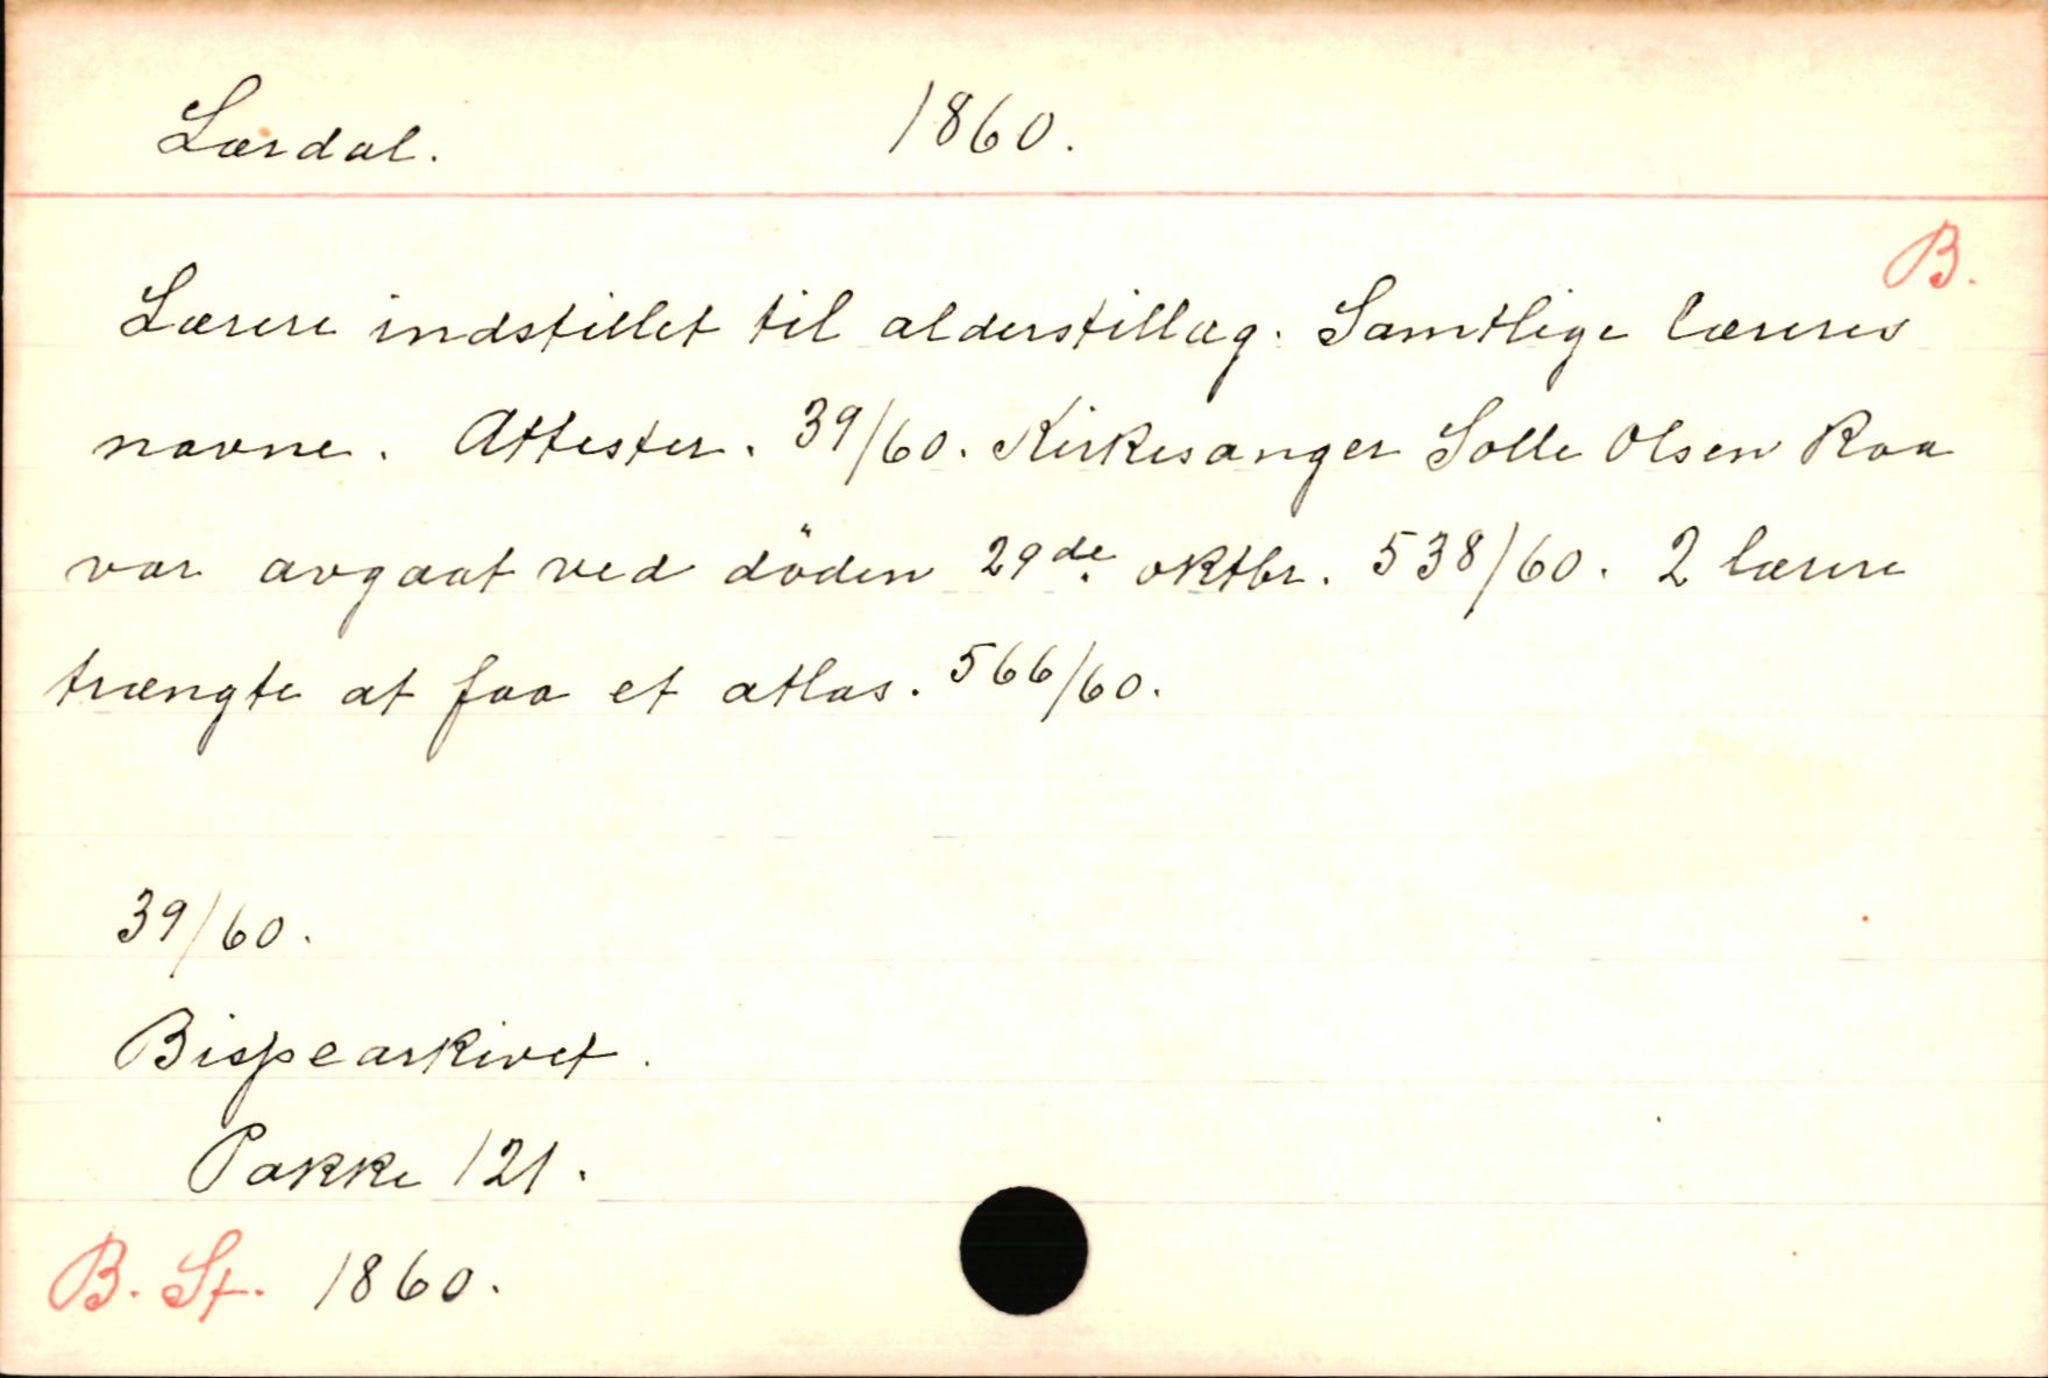 Lærdal. 1860.
B.
Lærere indstillet til alderstillæg. Samtlige læreres
navne. Attester. 39/60. Kirkesanger Solle Olsen Raa
var avgaat ved döden 29de oktbr. 538/60. 2 lærere
trængte at faa et atlas. 566/60.
39/60.
Bispearkivet.
Pakke 121.
B. St. 1860.